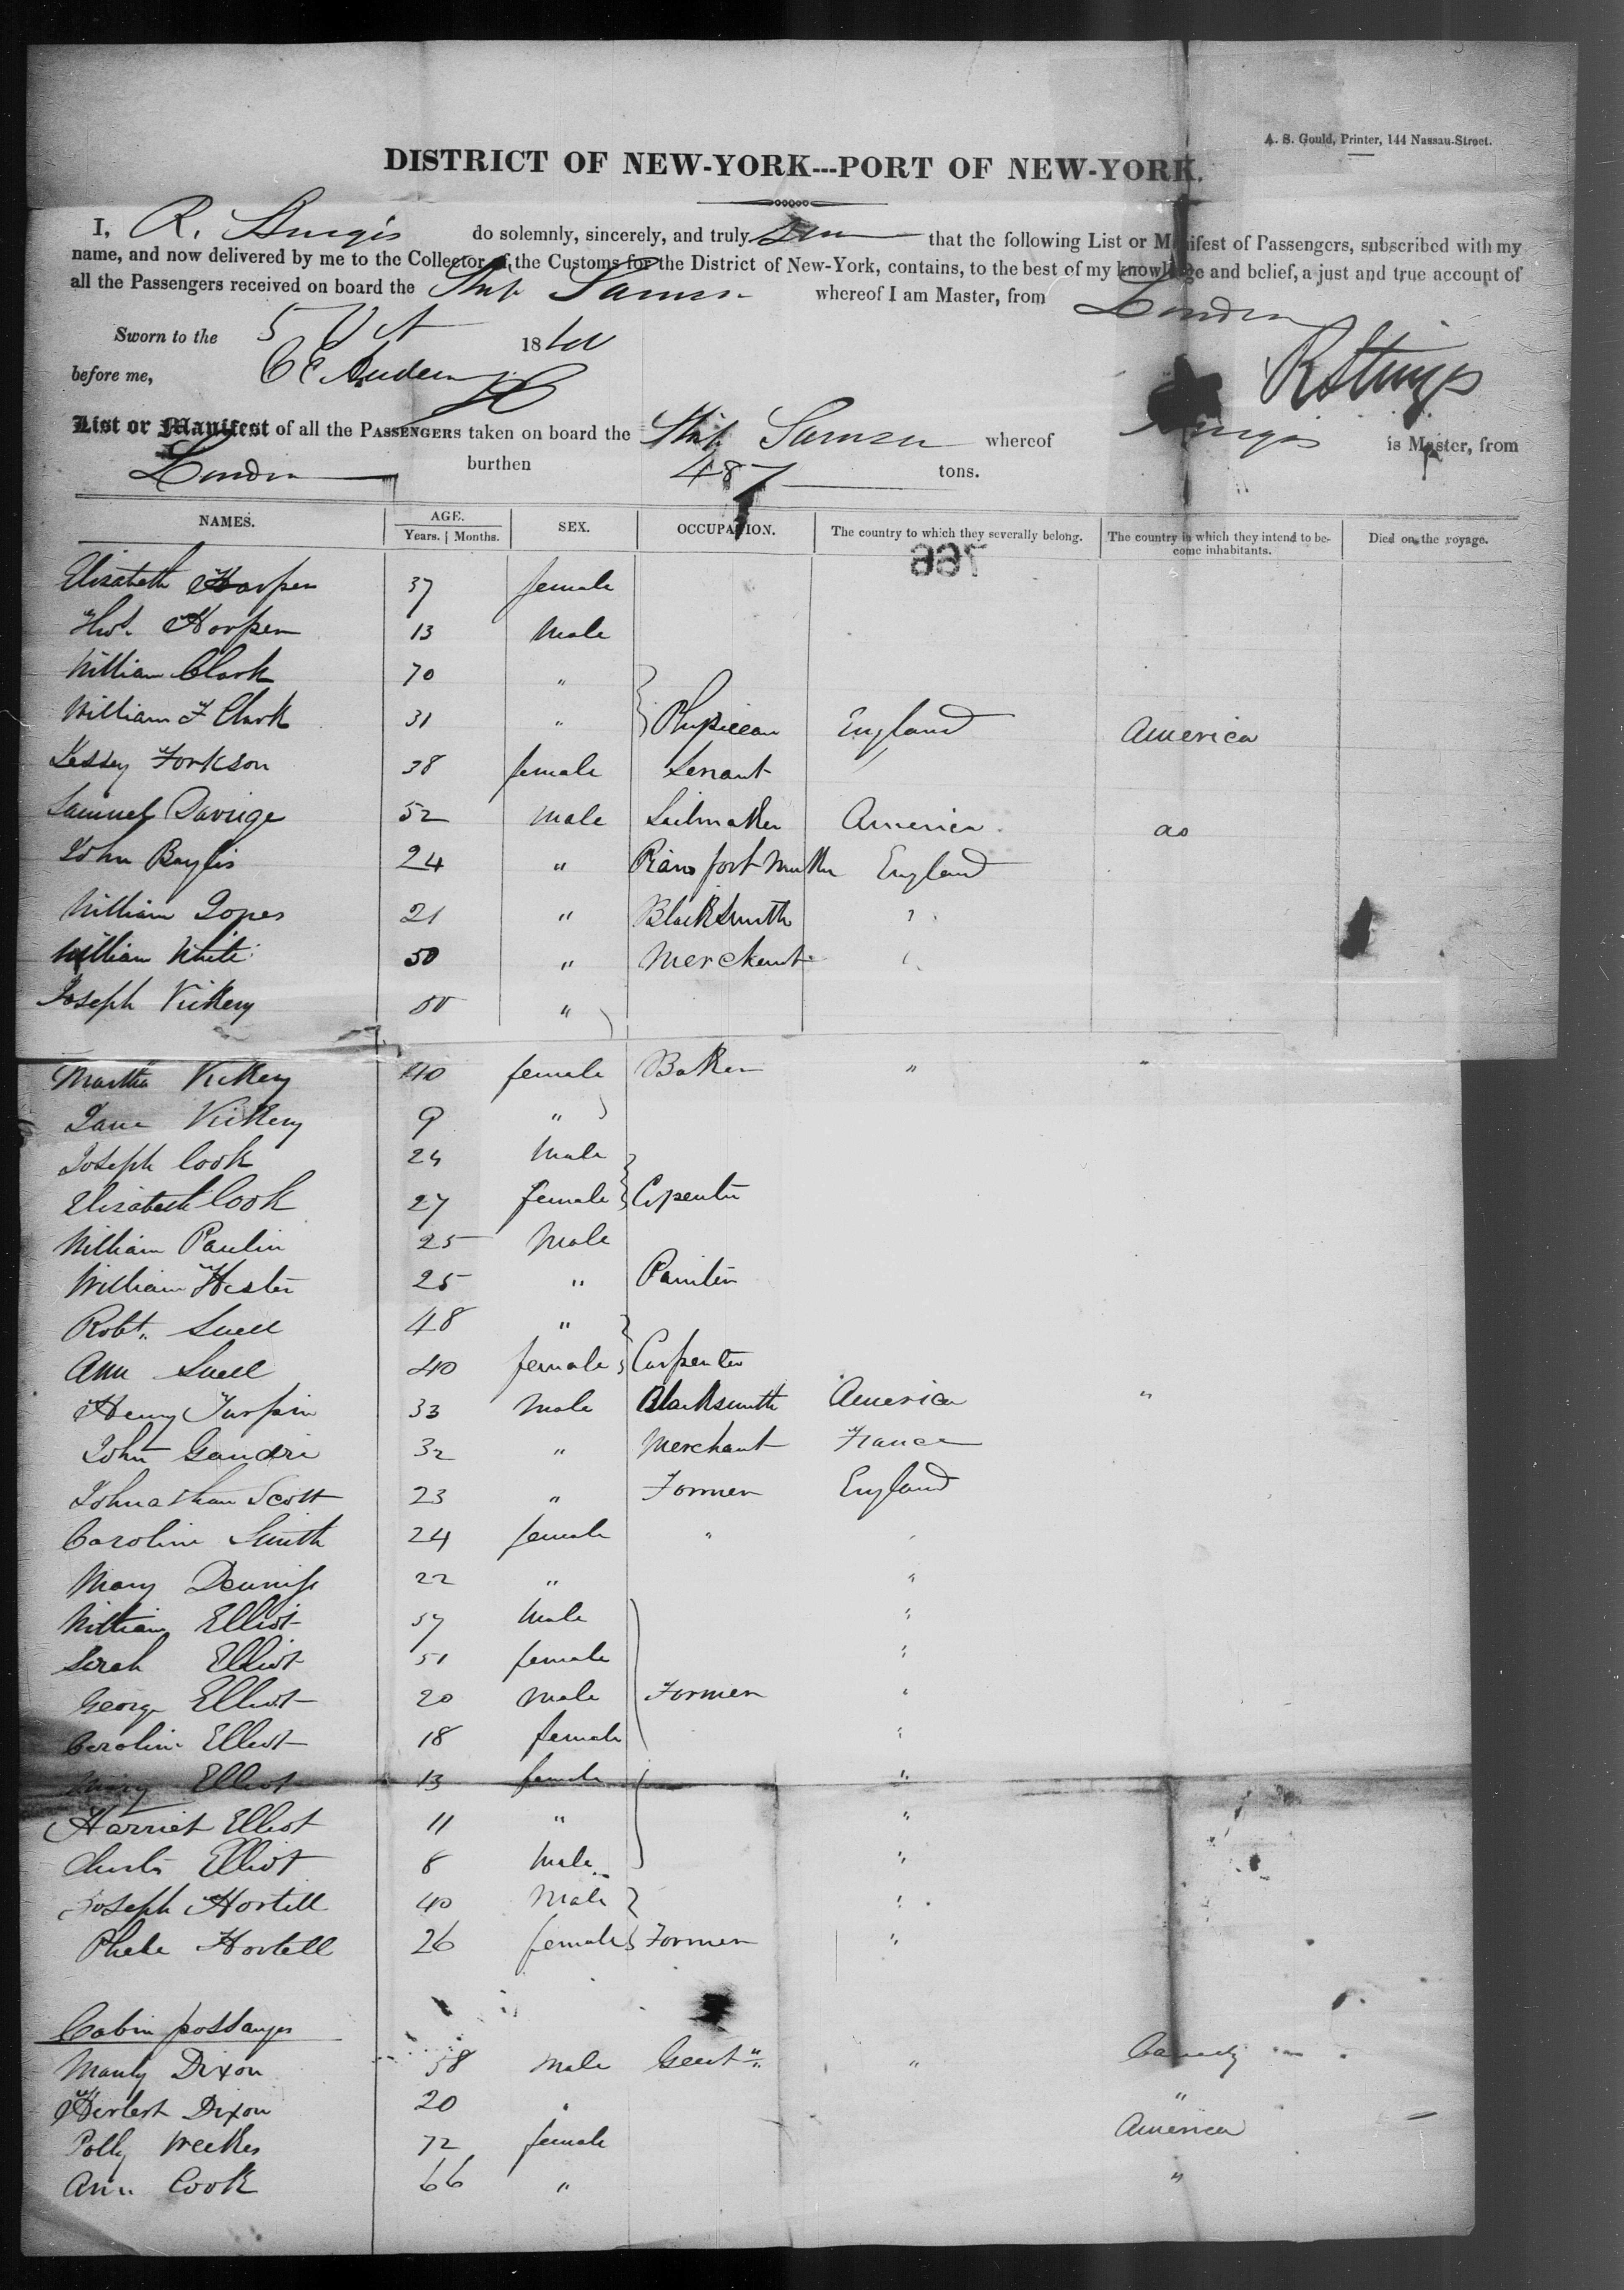 A. S. Gould, Printer, 144 Nassau-Street.
DISTRICT OF NEW-YORK---PORT OF NEW-YORK.
I, R. Sturgis do solemnly, sincerely, and truly that the following List or Manifest of Passengers, subscribed with my
name, and now delivered by me to the Collector of the Customs for the District of New-York, contains, to the best of my knowledge and belief, a just and true account of
all the Passengers received on board the Ship Samson whereof I am Master, from London
Sworn to the 5 Oct 18
before me, R Sturgis
List or Manifest of all the PASSENGERS taken on board the Ship Samson whereof Sturgis is Master, from
London burthen 487 tons.
NAMES. AGE. Years. | Months. SEX. OCCUPATION. The country to which they severally belong. The country in which they intend to become inhabitants. Died on the voyage.
Elizabeth Harper 37 female
Harper 13 Male
William Clark 70 "
William F Clark 31 " Physician England America
Forkson 38 female Servant
Samuel Davige 52 Male Sailmaker America do
John Baylis 24 " Piano fort Maker England
William Jones 21 " Blacksmith "
William White 50 " Merchant "
Joseph Vickery 50 "
Martha Vickery 40 female Baker " "
Jane Vickery 9 "
Joseph Cook 24 Male
Elizabeth Cook 27 female Cipenter
William Paulin 25 Male
William Hester 25 " Painter
Robt. Snell 48 "
Ann Snell 40 female Carpenter
Henry Turpin 33 Male Blacksmith America "
John Gandri 32 " Merchant France
Johnathan Scott 23 " Farmer England
Caroline Smith 24 female " "
Mary Dennis 22 " "
William Elliot 57 Male "
Sarah Elliot 51 female "
George Elliot 20 Male Farmer "
Caroline Elliot 18 female "
Mary Elliot 13 female "
Harriet Elliot 11 " "
Charles Elliot 8 Male "
Joseph Hortell 40 Male "
Phebe Hortell 26 female Farmer "
Cabin passanger
Manly Dixon 58 Male Gent " Canady
Herbert Dixon 20 " "
Polly Weekes 72 female America
Ann Cook 66 " "